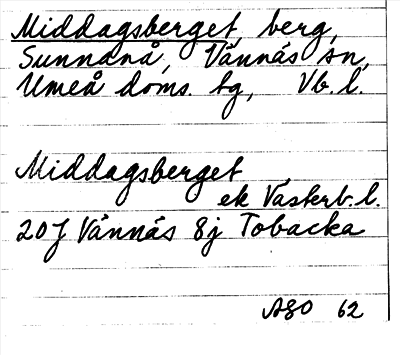 Middagsberget, berg,
Sunnanå, Vännäs sn,
Umeå doms. tg, Vb. l.
Middagsberget
ek Västerb. l.
20J Vännäs 8j Tobacka
ASO 62